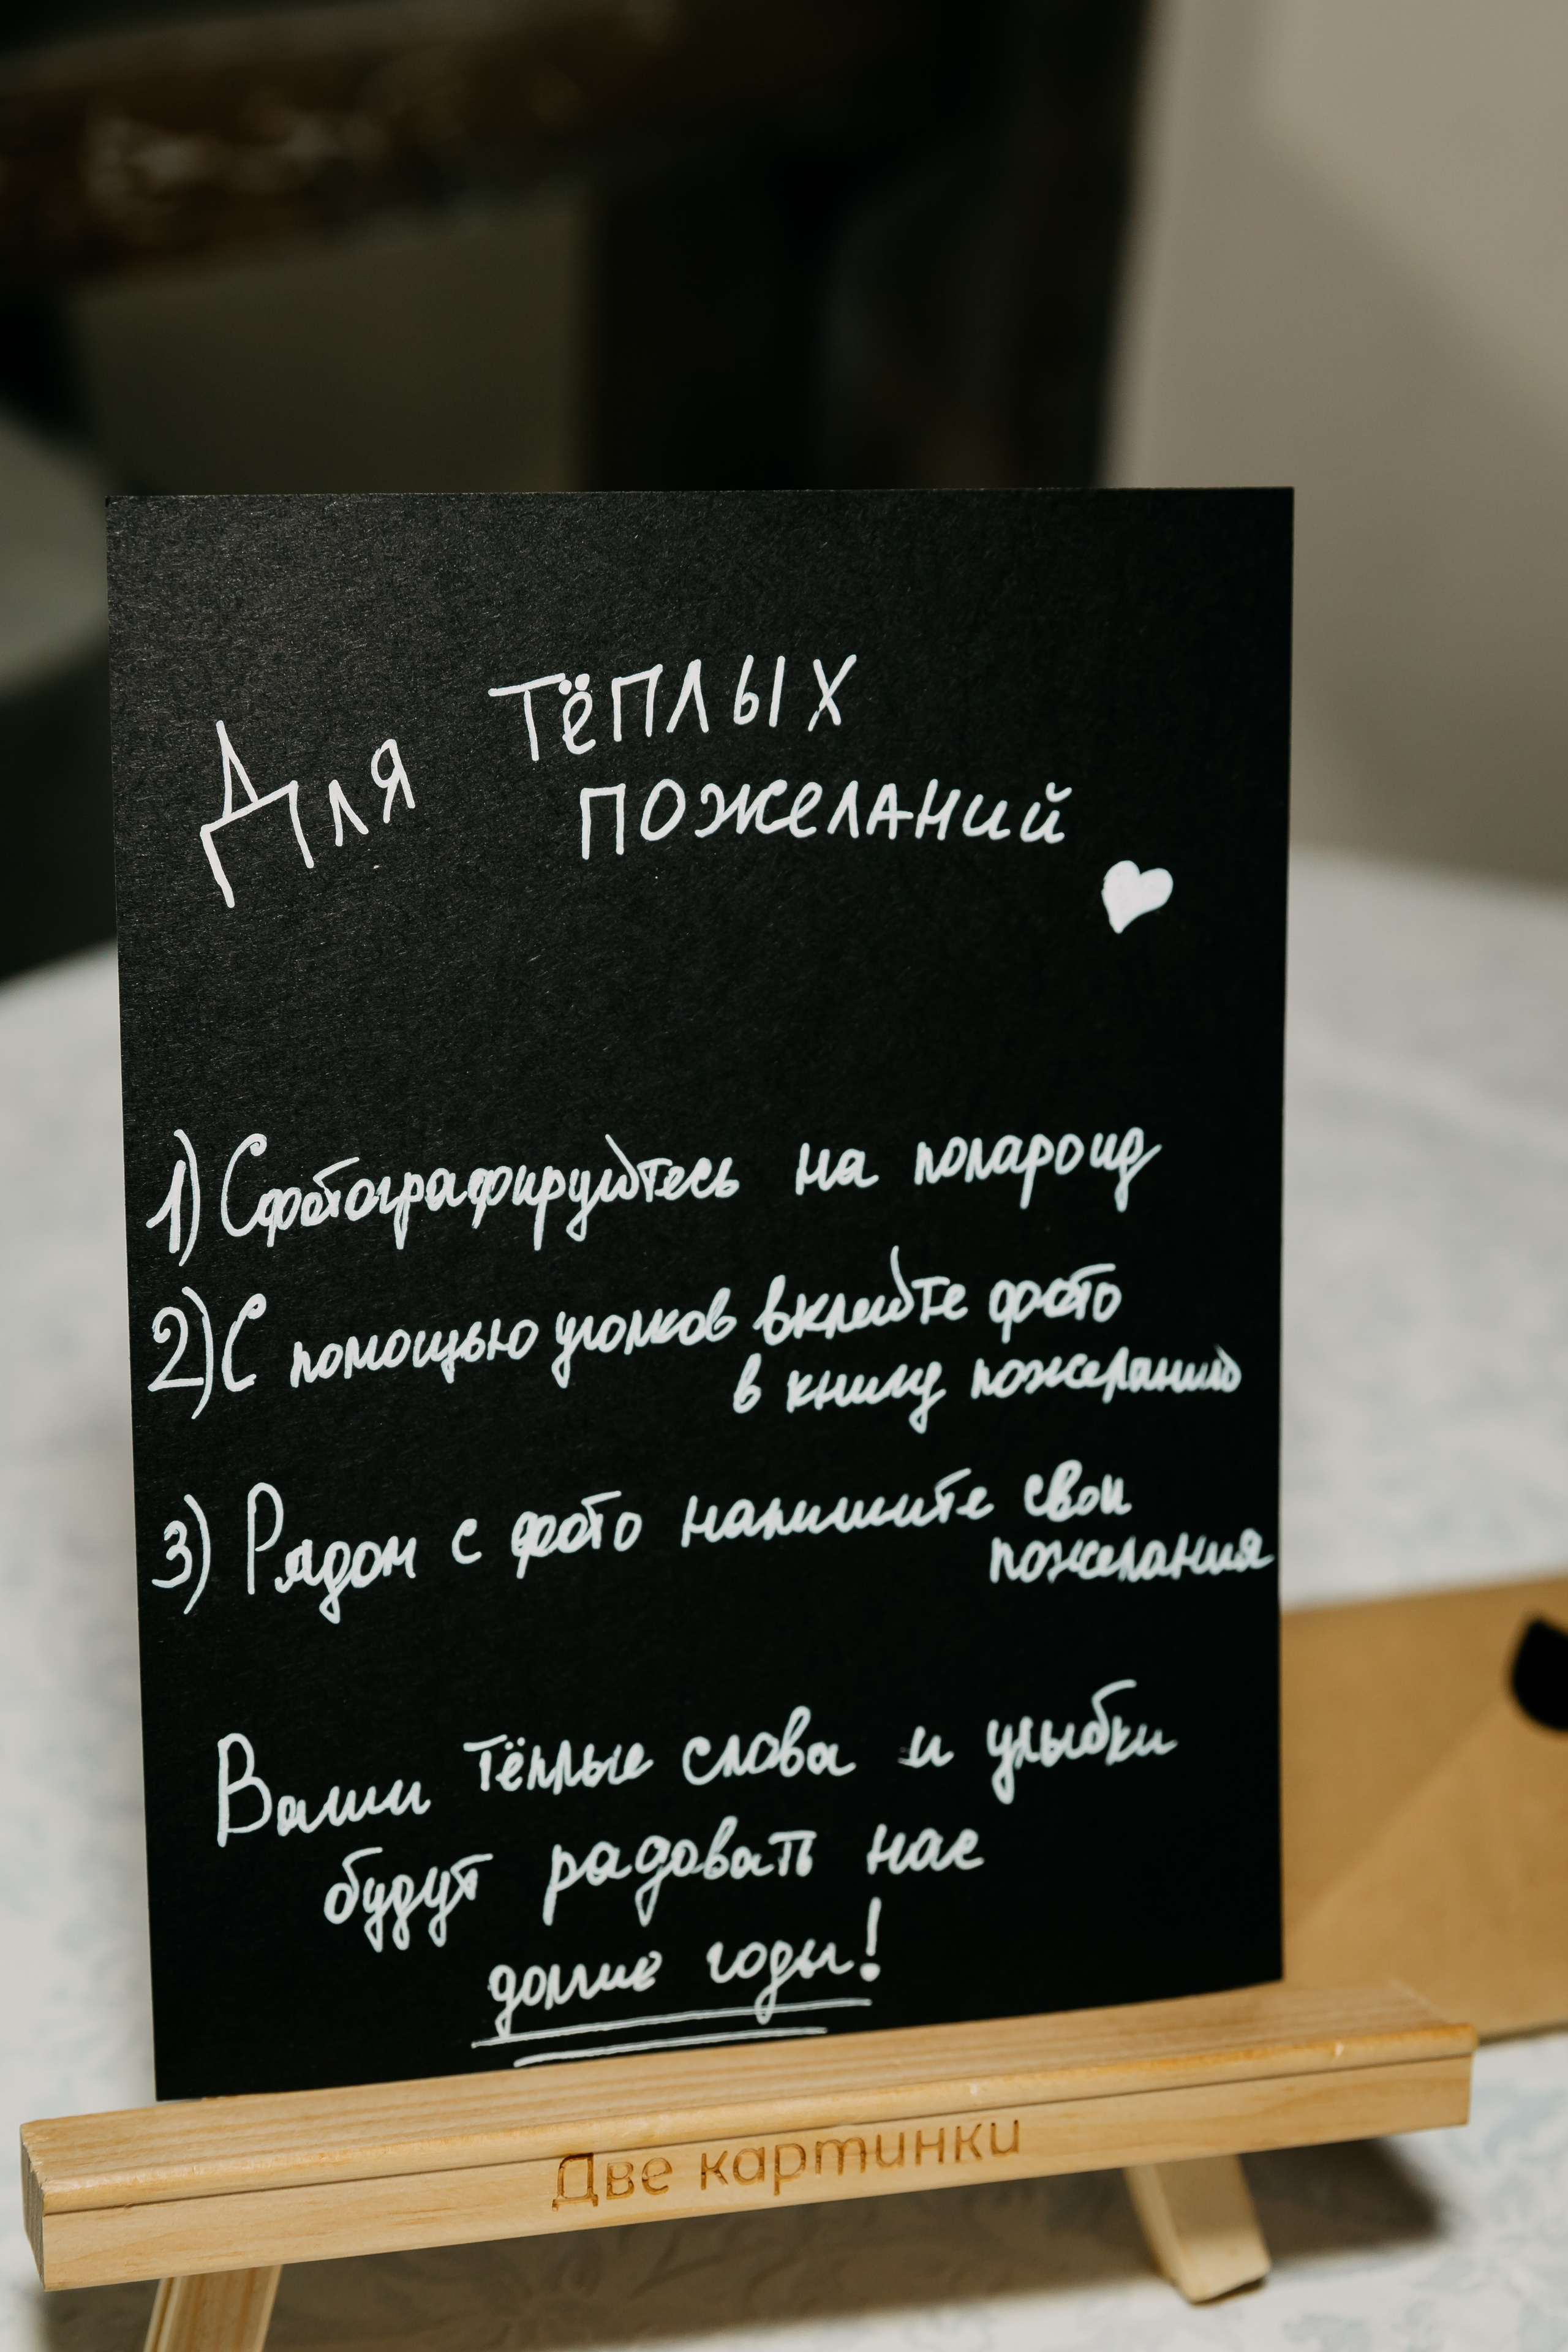 Для тёплых
пожеланий
1) Сфотографируйтесь на полароид
2) С помощью уголков вклейте фото
в книгу пожеланий
3) Рядом с фото напишите свои
пожелания
Ваши тёплые слова и улыбки
будут радовать нас
долгие годы!
Две картинки